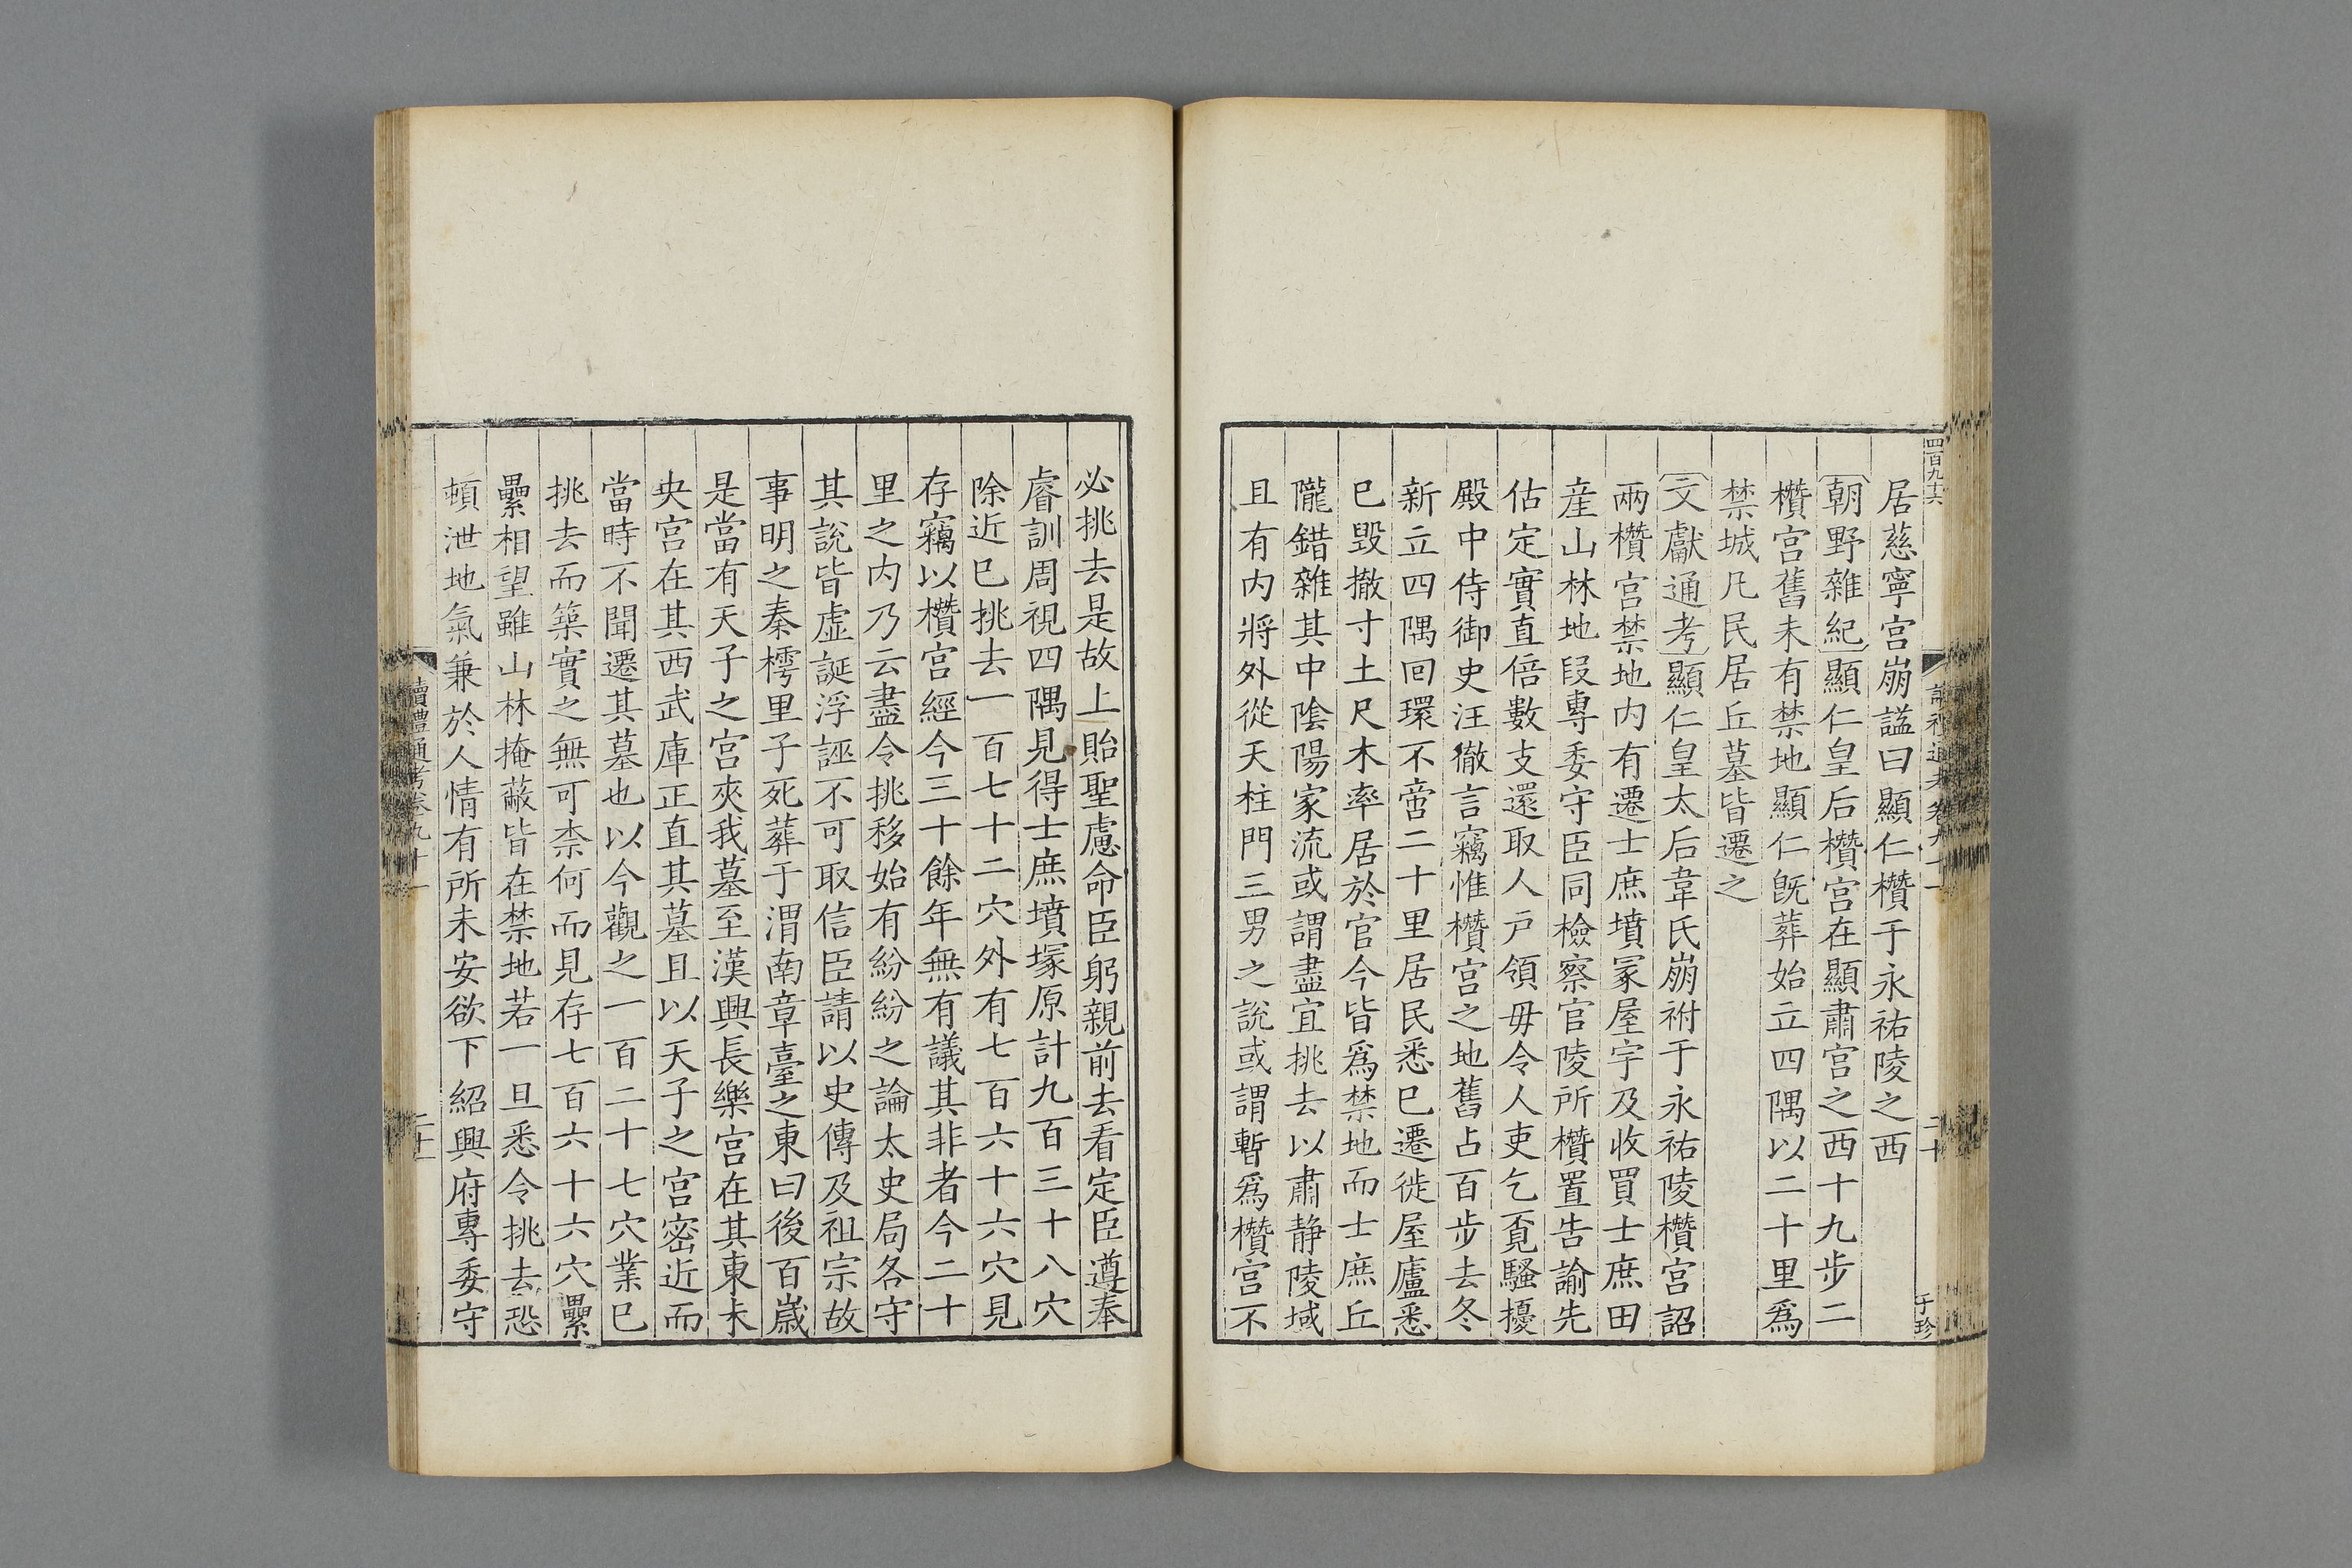 四百九十六
讀禮通考卷九十一
二十
于珍
居慈寧宫崩謚曰顯仁欑于永祐陵之西
朝野雜紀顯仁皇后欑宫在顯肅宫之西十九步二
欑宫舊未有禁地顯仁旣葬始立四隅以二十里爲
禁城凡民居丘墓皆遷之
文獻通考顯仁皇太后韋氏崩祔于永祐陵欑宫詔
兩欑宫禁地内有遷士庶墳冢屋宇及收買士庶田
産山林地段專委守臣同檢察官陵所欑置告諭先
估定實直倍數支還取人戸領毋令人吏乞覓騷擾
殿中侍御史汪徹言竊惟欑宫之地舊占百步去冬
新立四隅回環不啻二十里居民悉已遷徙屋廬悉
已毀撤寸土尺木率居於官今皆爲禁地而士庶丘
隴錯雜其中陰陽家流或謂盡宜挑去以肅静陵域
且有内將外從天柱門三男之說或謂暫爲欑宫不
必挑去是故上貽聖慮命臣躬親前去看定臣遵奉
睿訓周視四隅見得士庶墳塚原計九百三十八穴
除近已挑去一百七十二穴外有七百六十六穴見
存竊以欑宫經今三十餘年無有議其非者今二十
里之内乃云盡令挑移始有紛紛之論太史局各守
其説皆虚誕浮誣不可取信臣請以史傳及祖宗故
事明之秦樗里子死葬于渭南章臺之東曰後百歲
是當有天子之宫夾我墓至漢興長樂宫在其東未
央宫在其西武庫正直其墓且以天子之宫密近而
當時不聞遷其墓也以今觀之一百二十七穴業已
挑去而築實之無可柰何而見存七百六十六穴纍
纍相望雖山林掩蔽皆在禁地若一旦悉令挑去恐
頓泄地氣兼於人情有所未安欲下紹興府專委守
讀禮通考卷九十一
二十一